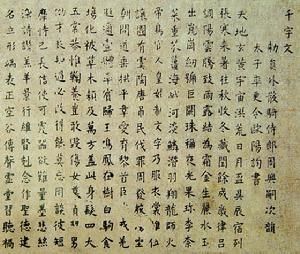 千字文
敕員外散騎侍郎周興嗣次韻
太子率更令歐陽詢書
天地玄黄宇宙洪荒日月盈昃辰宿列
張寒来暑往秋收冬藏閏餘成歲律吕
調陽雲騰致雨露結為霜金生麗水玉
出崑崗劍號巨闕珠稱夜光果珍李柰
菜重芥薑海鹹河淡鱗潛羽翔龍師火
帝鳥官人皇始制文字乃服衣裳推位
讓國有虞陶唐弔民伐罪周發殷湯坐
朝問道垂拱平章愛育黎首臣伏戎羌
遐邇壹體率賓歸王鳴鳳在樹白駒食
場化被草木賴及萬方蓋此身髮四大
五常恭惟鞠養豈敢毀傷女慕貞絜男
效才良知過必改得能莫忘罔談彼短
靡恃己長信使可覆器欲難量墨悲絲
染詩讚羔羊景行維賢剋念作聖德建
名立形端表正空谷傳聲虛堂習聽禍